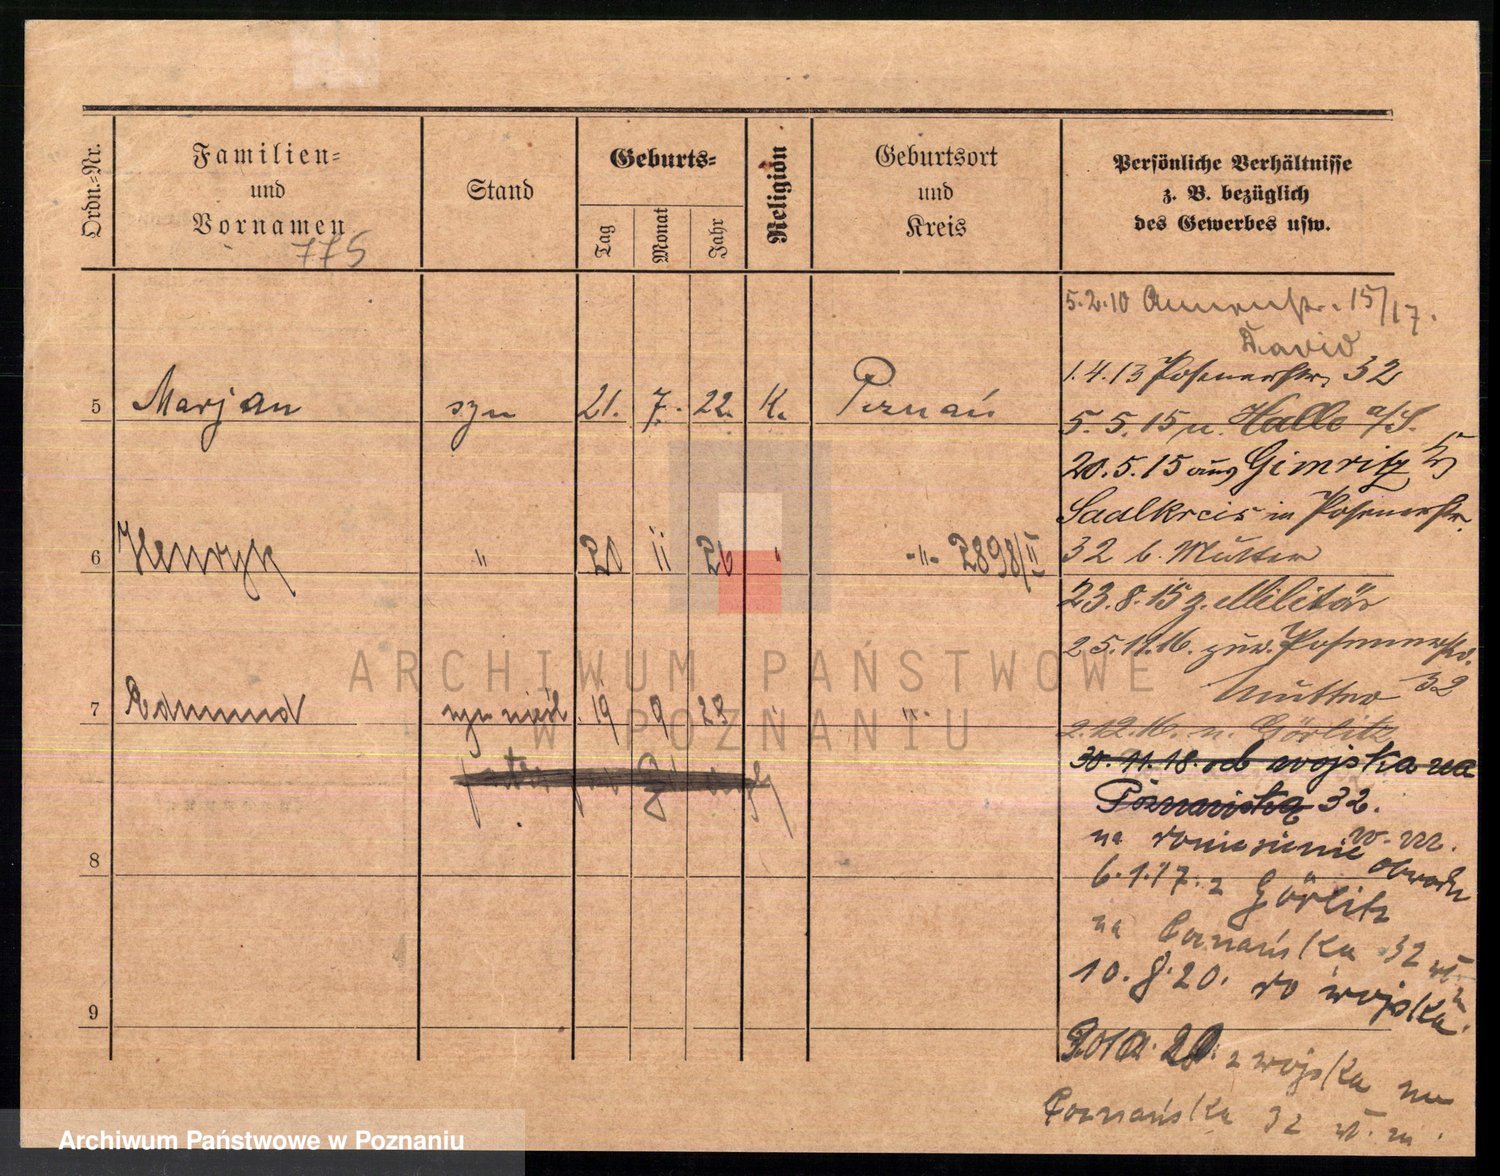 Ordn.=Nr.
Familien=
und
Vornamen
775
Stand
Geburts=
Tag
Monat
Jahr
Religion
Geburtsort
und
Kreis
Persönliche Verhältnisse
z. B. bezüglich
des Gewerbes usw.
5.2.10 Annenstr. 15/17.
David
1.4.13 Posenerstr. 32
5 Marjan syn 21. 7. 22. K. Poznań
5.5.15 n. Halle a/S.
20.5.15 aus Gimritz
Saalkreis in Posenerstr.
6 Henryk " 20 II 26 " -"- 2898/II
32 b. Mutter
23.8.15 z. Militär
25.11.16. zur. Posenerstr.
Mutter 32
7 Edmund syn nieśl. 19 9 23 " "
2.12.16. n. Görlitz
30.11.18. od wojska na
Poznańska 32.
na doniesienie w. m.
8
obwodu
6.1.17. z Görlitz
na Poznańska 32 wł. m
10.8.20. do wojska.
9
20. z wojska na
Poznańska 32 wł. m.
ARCHIWUM PAŃSTWOWE
W POZNANIU
Archiwum Państwowe w Poznaniu